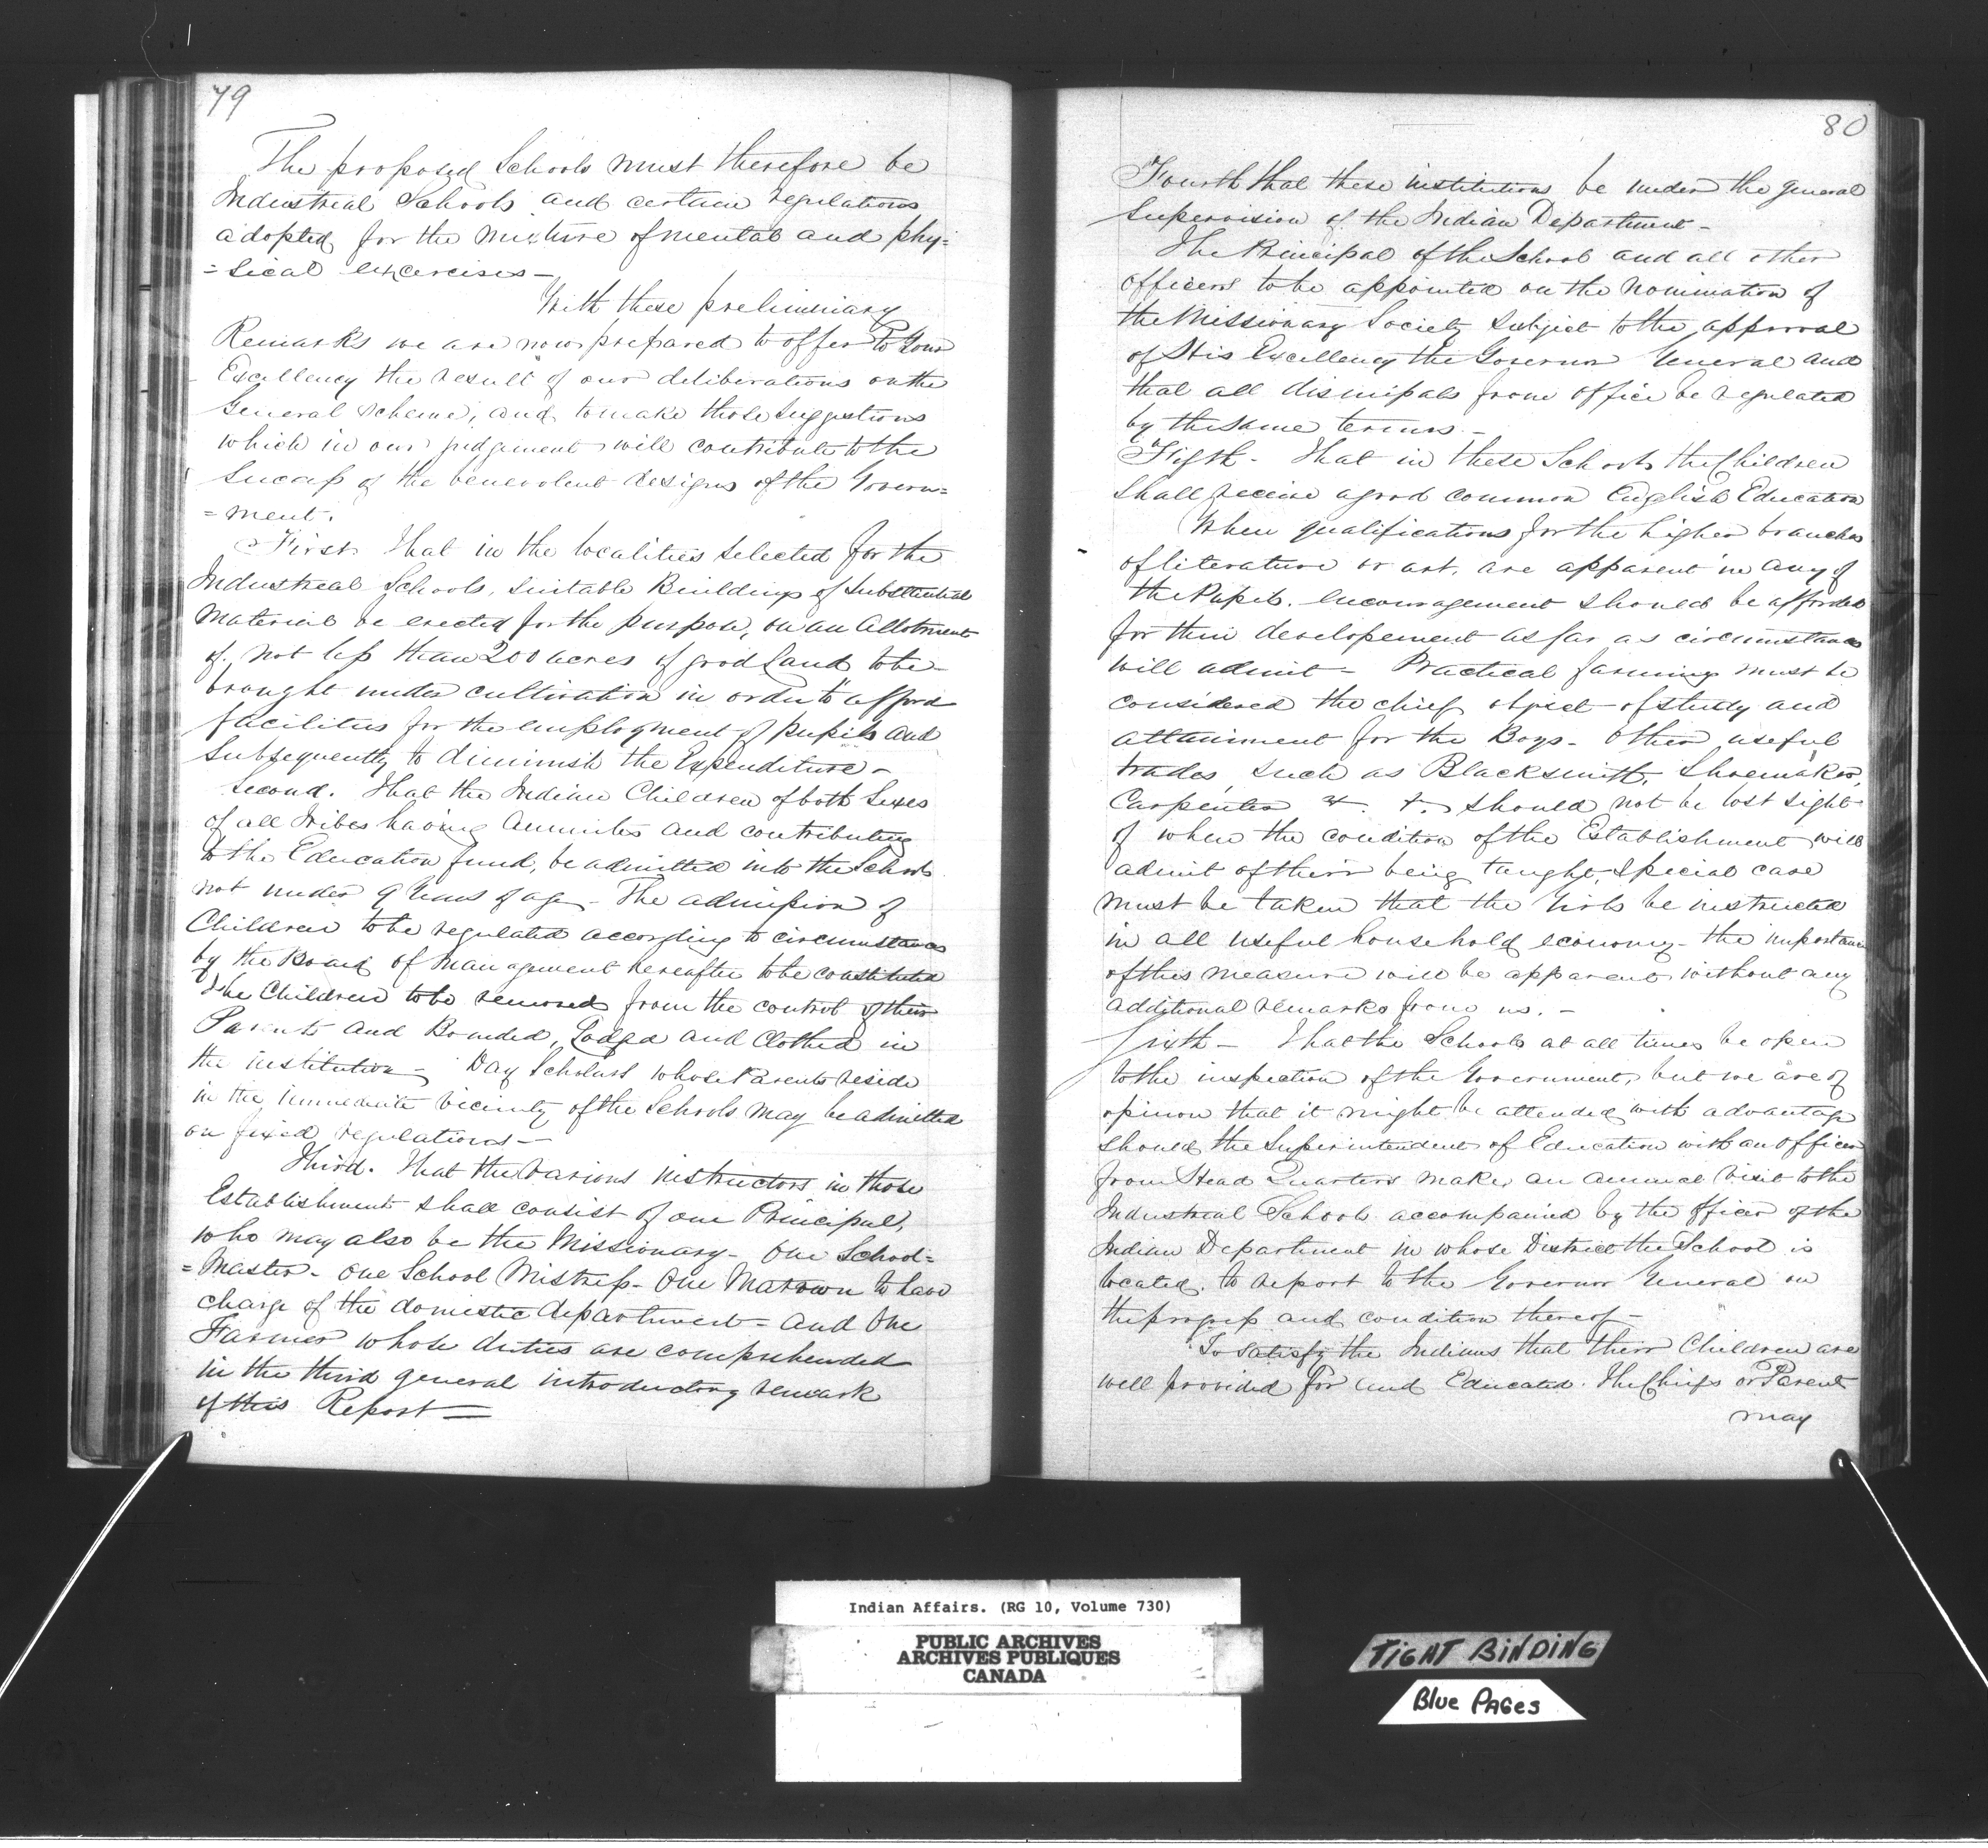 79
The proposed Schools must therefore be
Industrial Schools and certain regulations
adopted for the mixture of mental and phy=
=sical excercises—
With these preliminary
Remarks we are now prepared to offer To Your
Excellency the result of our deliberations on the
General scheme, and to make those suggestions
which in our judgement will contribute to the
Success of the benevolent designs of the Govern=
=ment.
First. That in the localities selected for the
Industrial Schools, suitable Buildings of Substantial
Material be erected for the purpose, on an Allotment
of not less than 200 acres of good Land to be
brought under cultivation in order to afford
facilities for the employment of pupils and
Subsequently to diminish the Expenditure—
Second. That the Indian Children of both Sexes
of all tribes having Annuities and contributing
to the Education fund, be admitted into the Schools
not under 9 Years of age— The admission of
Children to be regulated according to circumstances
by the Board of Management hereafter to be constituted
The Children to be removed from the control of their
Parents and Boarded, Lodged and Clothed in
the institution— Day Scholars whose Parents reside
in the immediate vicinity of the Schools may be admitted
on fixed regulations—
Third. That the various instructors in those
Establishments shall consist of one Principal,
who may also be the Missionary— One School=
=Master— One School Mistress— One Matrown to have
charge of the domestic department— and One
Farmer whose duties are comprehended
in the third general introductory remark
of this Report=
80
Fourth that these institutions be under the general
Supervision of the Indian Department—
The Principal of the School and all other
officers to be appointed on the nomination of
the Missionary Society subject to the approval
of His Excellency the Governor General and
that all dismissals from office be regulated
by the same terms—
Fifth— That in these Schools the Children
shall receive a good common English Education
When qualifications for the higher branches
of literature or art, are apparent in any of
the Pupils. encouragement should be afforded
for their developement as far as circumstances
will admit— Practical farming must be
considered the chief object of study and
attainment for the Boys— Other useful
trades, such as Blacksmith, Shoemaker,
Carpenter &. &. should not be lost sight
of when the condition of the Establishment will
admit of their being taught, Special care
must be taken that the Girls be instructed
in all useful household economy— the importance
of this measure will be apparent without any
additional remarks from us.—
Sixth— That the Schools at all times be open
to the inspection of the Government, but we are of
opinion that it might be attended with advantage
should the Superintendent of Education with an officer
from Head Quarters make, an annual visit to the
Industrial Schools accompanied by the officer of the
Indian Department in whose District the School is
located. to report to the Governor General on
the progress and condition thereof—
To satisfy the Indians that their Children are
well provided for and Educated. The Chiefs or Parent
may
Indian Affairs. (RG 10, Volume 730)
PUBLIC ARCHIVES
ARCHIVES PUBLIQUES
CANADA
TIGHT BINDING
Blue PAGes